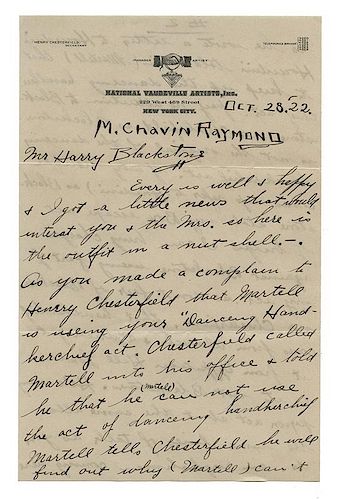 HENRY CHESTERFIELD
SECRETARY
TELEPHONE BRYANT
MANAGER ARTIST
NATIONAL VAUDEVILLE ARTISTS, INC.
229 West 46th Street
NEW YORK CITY.
OCT. 28, '22.
M. Chavin Raymond
Mr Harry Blackstone
Every is well & happy
& I got a little news that would
interst you & the Mrs. so here is
the outfit in a nut shell.-.
As you made a complain to
Henry Chesterfield that Martell
is useing your "Danceng Hand-
kerchief act. Chesterfield called
Martell into his office & told
he that he (Martell) can not use
the act of danceng handkerchief
Martell tells Chesterfield he will
find out why (Martell) can't